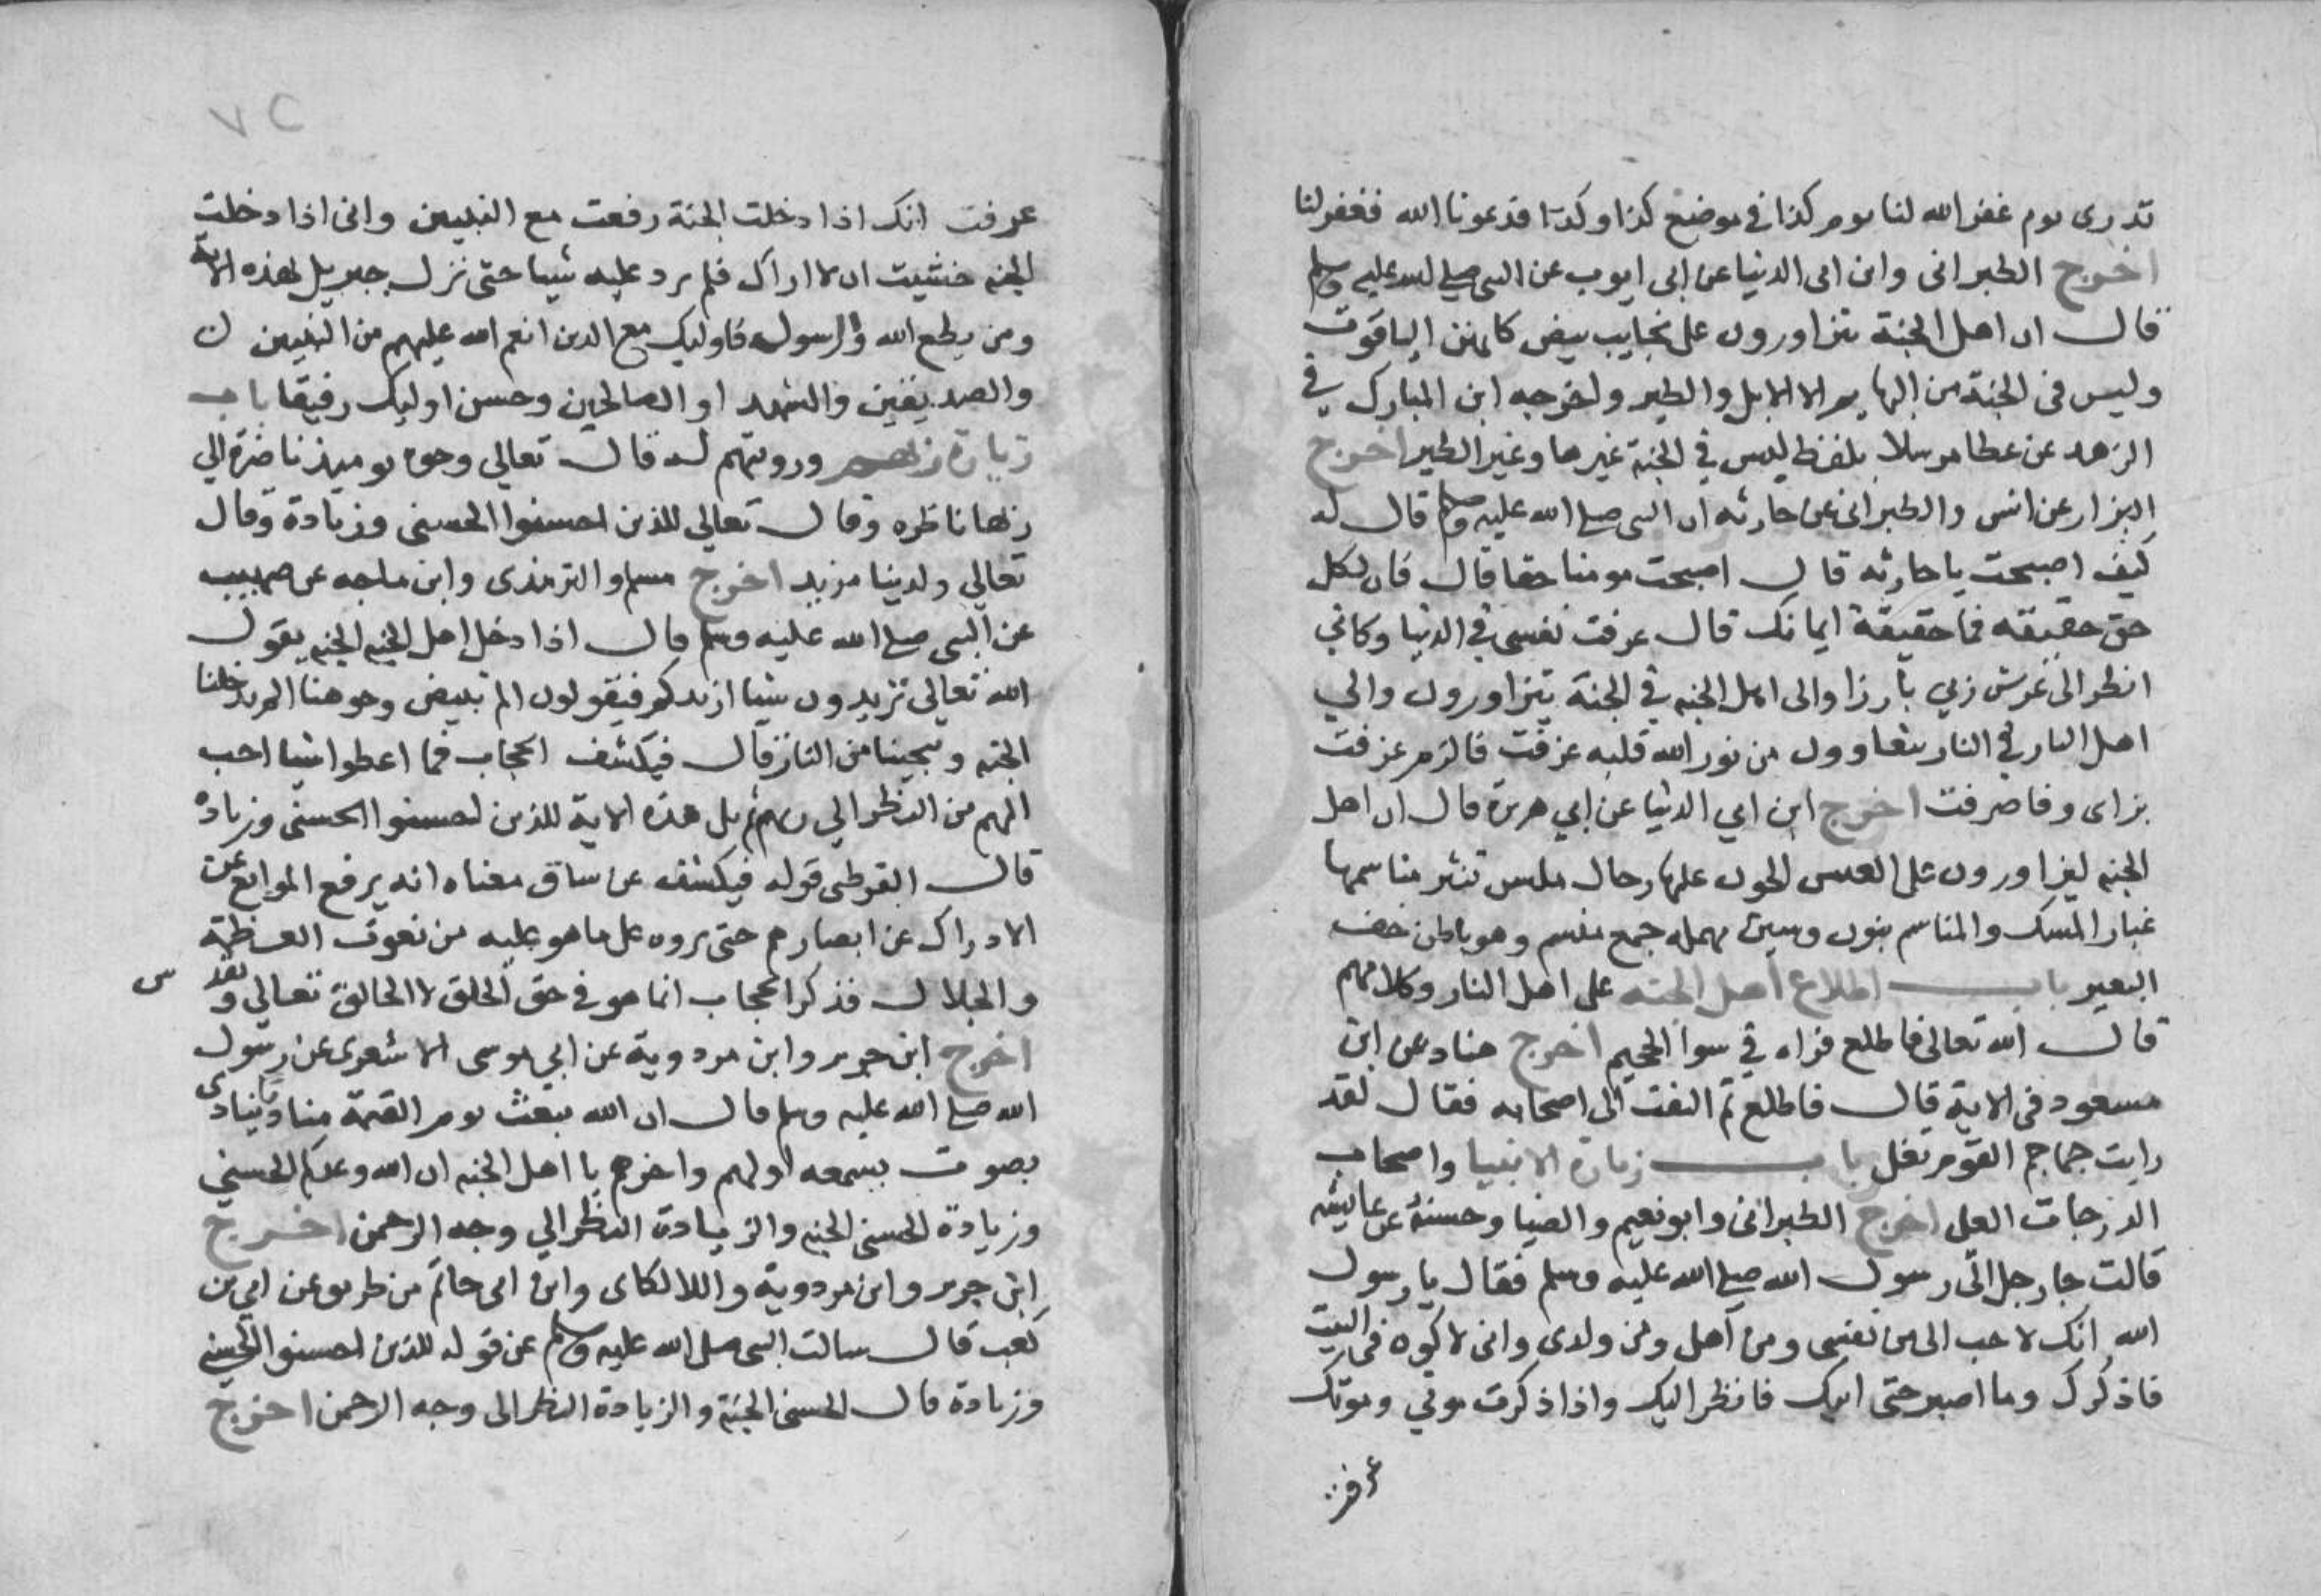 تدرى يوم غفر الله لنا يوم كذا في موضع كذا وكذا فدعونا الله فغفر لنا
اخرج الطبرانى وابن ابى الدنيا عن ابى ايوب عن النبى صلى الله عليه وسلم
قال ان اهل الجنة يتزاورون على نجايب بيض كانهن الياقوت
وليس فى الجنة من البهايم الا الابل والطير واخرجه ابن المبارك في
الزهد عن عطا مرسلا بلفظ ليس في الجنة غيرها وغير الطير اخرج
البزار عن انس والطبرانى عن حارثه ان النبى صلى الله عليه وسلم قال له
كيف اصبحت يا حارثه قال اصبحت مومنا حقا قال فان لكل
حق حقيقه فما حقيقة ايمانك قال عرفت نفسى في الدنيا وكاني
انظر الى عرش ربي بارزا والى اهل الجنه في الجنة يتزاورون والي
اهل النار في النار يتعاوون من نور الله قلبه عرفت فالزم عرفت
اخرج ابن ابي الدنيا عن ابي هريرة قال ان اهل
الجنه ليزاورون على العيس الجون عليها رحال الميس تثير مناسمها
غبار المسك والمناسم بنون وسين مهمله جمع منسم وهو باطن خف
البعير باب اطلاع اهل الجنه على اهل النار وكلامهم
قال الله تعالى فاطلع فراه في سوا الجحيم اخرج هناد عن ابن
مسعود فى الاية قال فاطلع ثم التفت الى اصحابه فقال لقد
رايت جماجم القوم تغلي باب زيارة الانبيا واصحاب
الدرجات العلى اخرج الطبرانى وابو نعيم والضيا وحسنه عن عايشه
قالت جا رجل الى رسول الله صلى الله عليه وسلم فقال يا رسول
الله انك لاحب الى من نفسى ومن اهلى ومن ولدى وانى لاكون فى البيت
فاذكرك وما اصبر حتى اتيك فانظر اليك واذا ذكرت موتي وموتك
عرفت
٧٢
عرفت انك اذا دخلت الجنة رفعت مع النبيين وانى اذا دخلت
الجنه خشيت ان لا اراك فلم يرد عليه شيا حتى نزل جبريل لهذه الاية
ومن يطع الله والرسول فاوليك مع الذين انعم الله عليهم من النبيين
والصديقين والشهدا والصالحين وحسن اوليك رفيقا باب
زيارة ربهم ورويتهم له قال تعالي وجوه يوميذ ناضرة الي
ربها ناظره وقال تعالي للذين احسنوا الحسنى وزيادة وقال
تعالي ولدينا مزيد اخرج مسلم والترمذى وابن ماجه عن صهيب
عن النبى صلى الله عليه وسلم قال اذا دخل اهل الجنه الجنه يقول
الله تعالى تريدون شيا ازيدكم فيقولون الم تبيض وجوهنا الم تدخلنا
الجنه وتنجينا من النار قال فيكشف الحجاب فما اعطوا شيا احب
اليهم من النظر الى ربهم ثم تلا هذه الاية للذين احسنوا الحسنى وزياده
قال القرطبى قوله فيكشف عن ساق معناه انه يرفع الموانع عن
الادراك عن ابصارهم حتى يروه على ما هو عليه من نعوت العظمة
والجلال فذكر الحجاب انما هو في حق الخلق لا الخالق تعالي وتقدس
اخرج ابن جرير وابن مردوية عن ابي موسى الاشعرى عن رسول
الله صلى الله عليه وسلم قال ان الله يبعث يوم القيمة مناديا ينادى
بصوت يسمعه اولهم واخرهم يا اهل الجنه ان الله وعدكم الحسني
وزيادة الحسنى الجنه والزيادة النظر الي وجه الرحمن اخرج
ابن جرير وابن مردوية واللالكاى وابن ابى حاتم من طريق عن ابي بن
كعب قال سالت النبى صلى الله عليه وسلم عن قوله للذين احسنوا الحسنى
وزيادة قال الحسنى الجنة والزيادة النظر الى وجه الرحمن اخرج